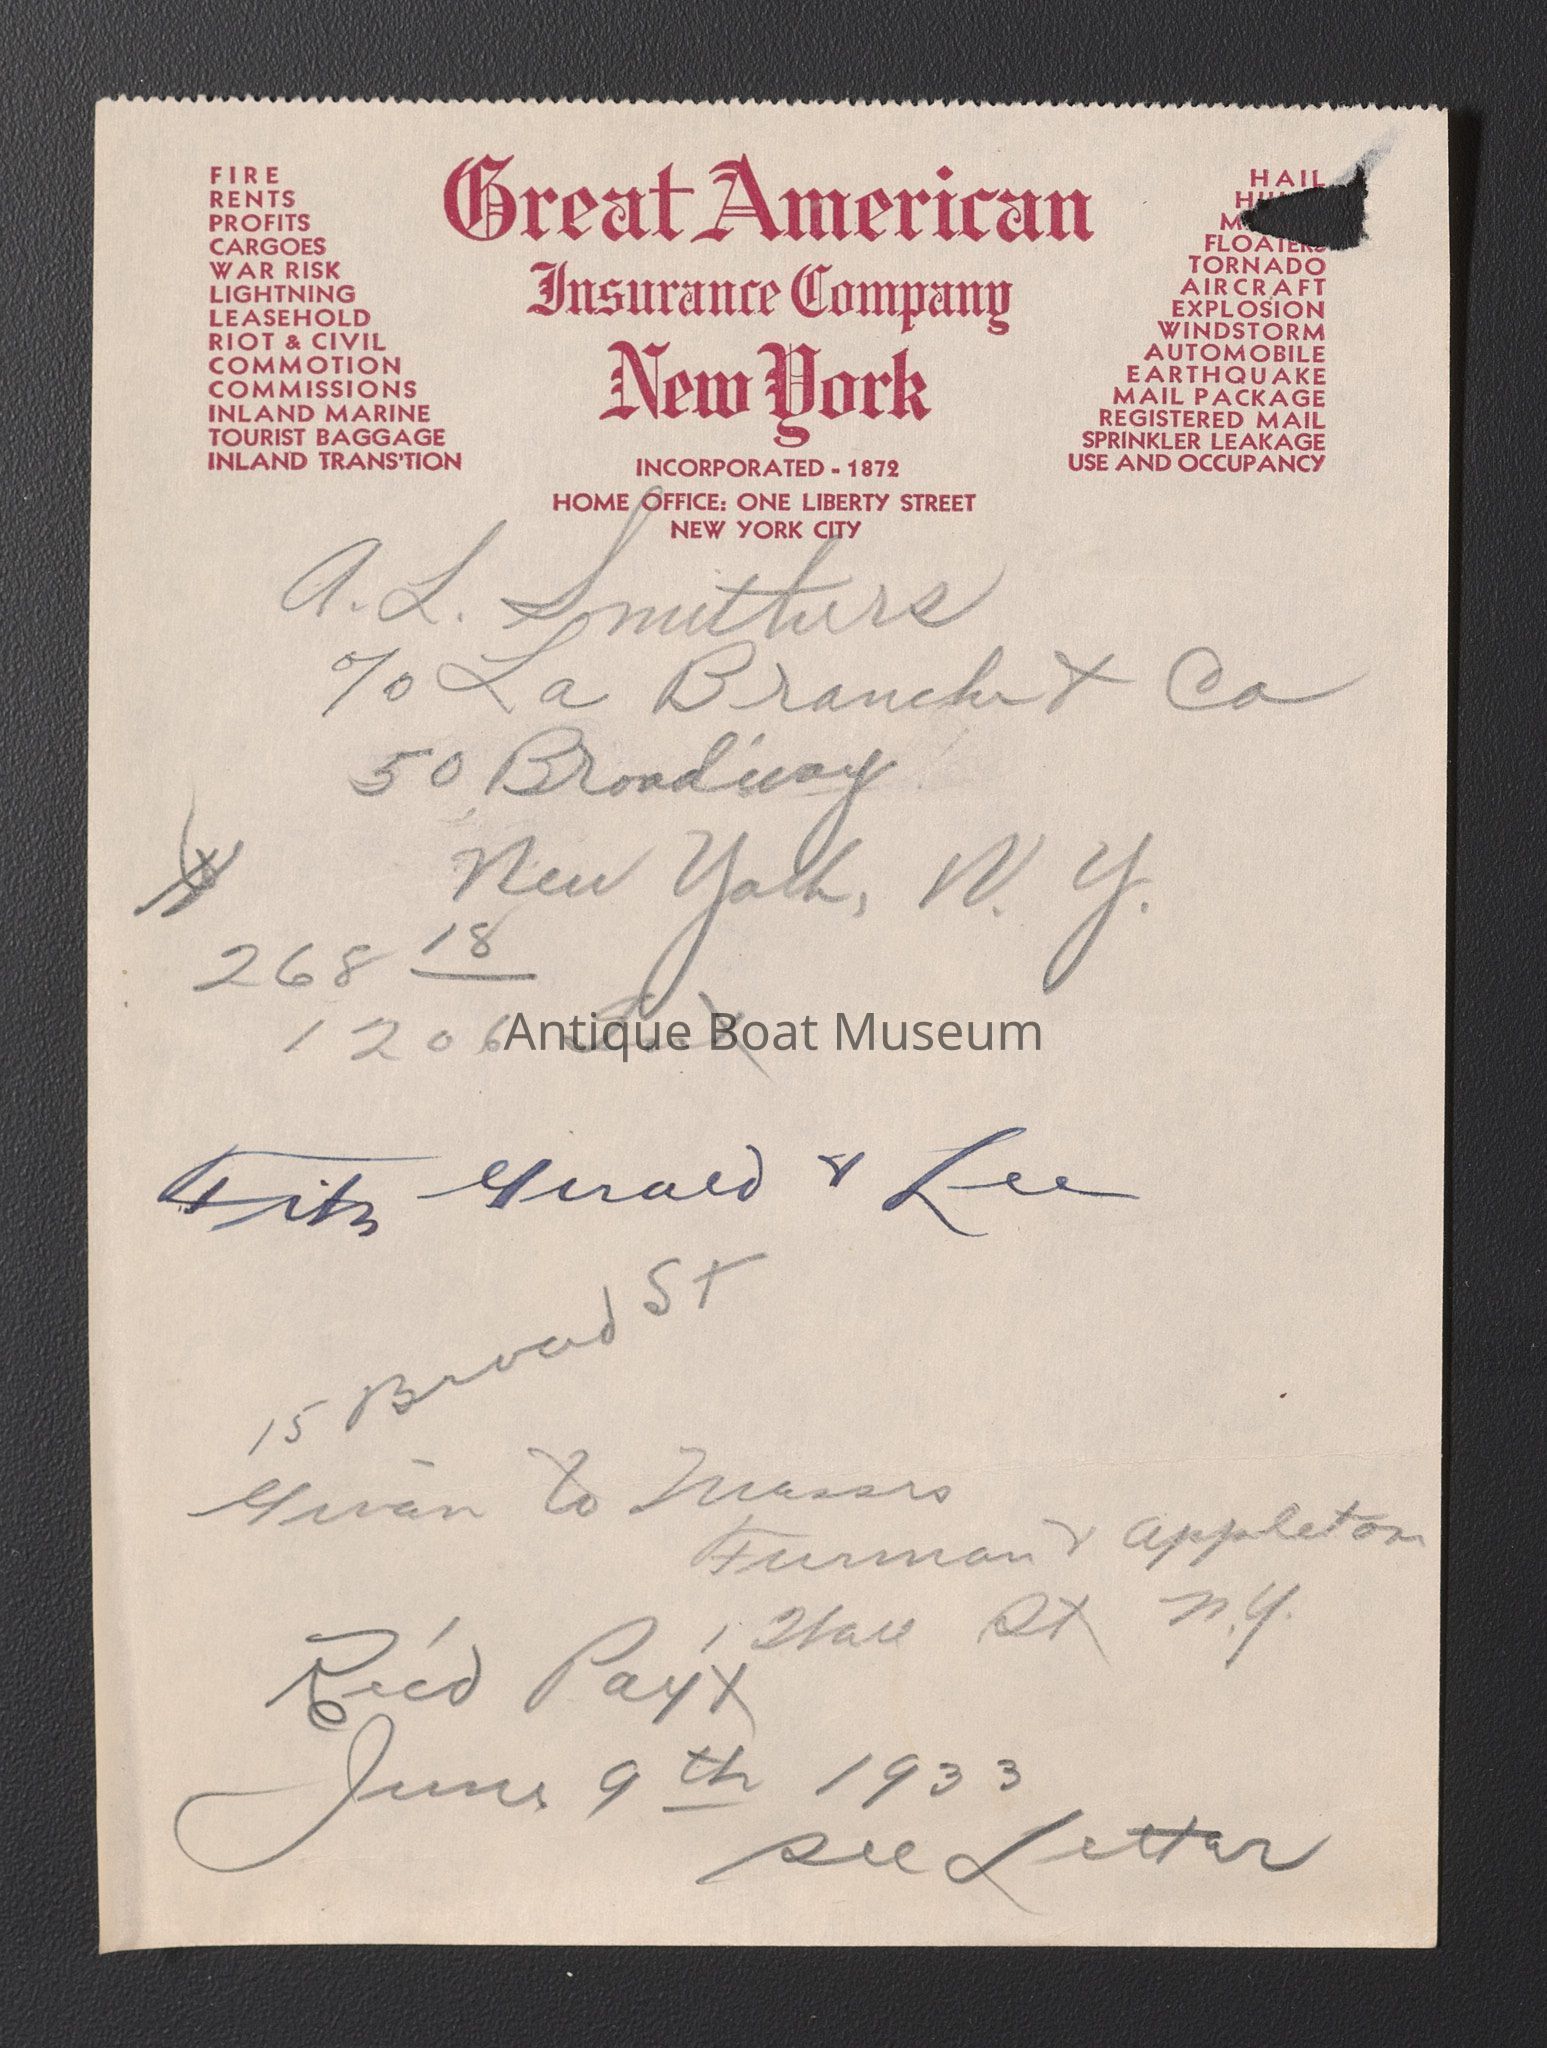 FIRE
RENTS
PROFITS
CARGOES
WAR RISK
LIGHTNING
LEASEHOLD
RIOT & CIVIL
COMMOTION
COMMISSIONS
INLAND MARINE
TOURIST BAGGAGE
INLAND TRANS'TION
Great American
Insurance Company
New York
INCORPORATED - 1872
HOME OFFICE: ONE LIBERTY STREET
NEW YORK CITY
HAIL
FLOATERS
TORNADO
AIRCRAFT
EXPLOSION
WINDSTORM
AUTOMOBILE
EARTHQUAKE
MAIL PACKAGE
REGISTERED MAIL
SPRINKLER LEAKAGE
USE AND OCCUPANCY
A. L. Smithers
% La Branche & Co
50 Broadway
New York, N. Y.
268 18
1206
Antique Boat Museum
Fitz Gerald & Lee
15 Broad St
Given to Messrs
Furman & Appleton
1 Wall St N.Y.
Rec'd Pay't
June 9th 1933
see Letter